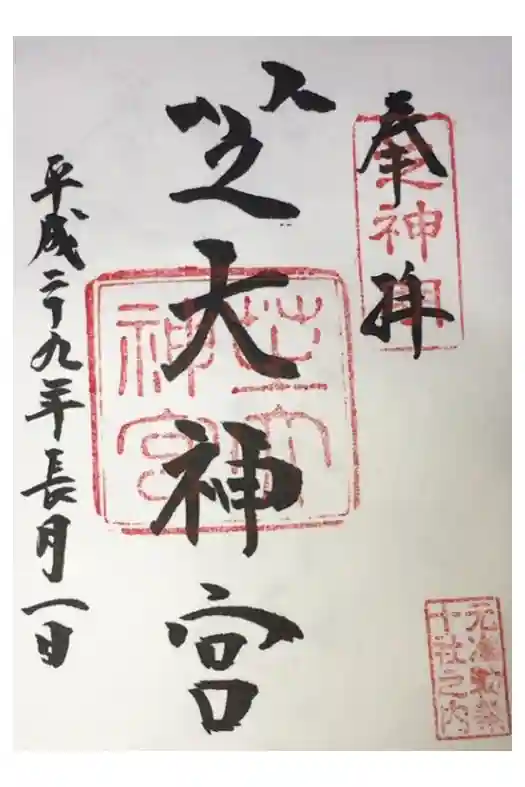 奉拝
芝大神宮
平成二十九年長月一日
芝大
神宮
元准勅祭
十社之内